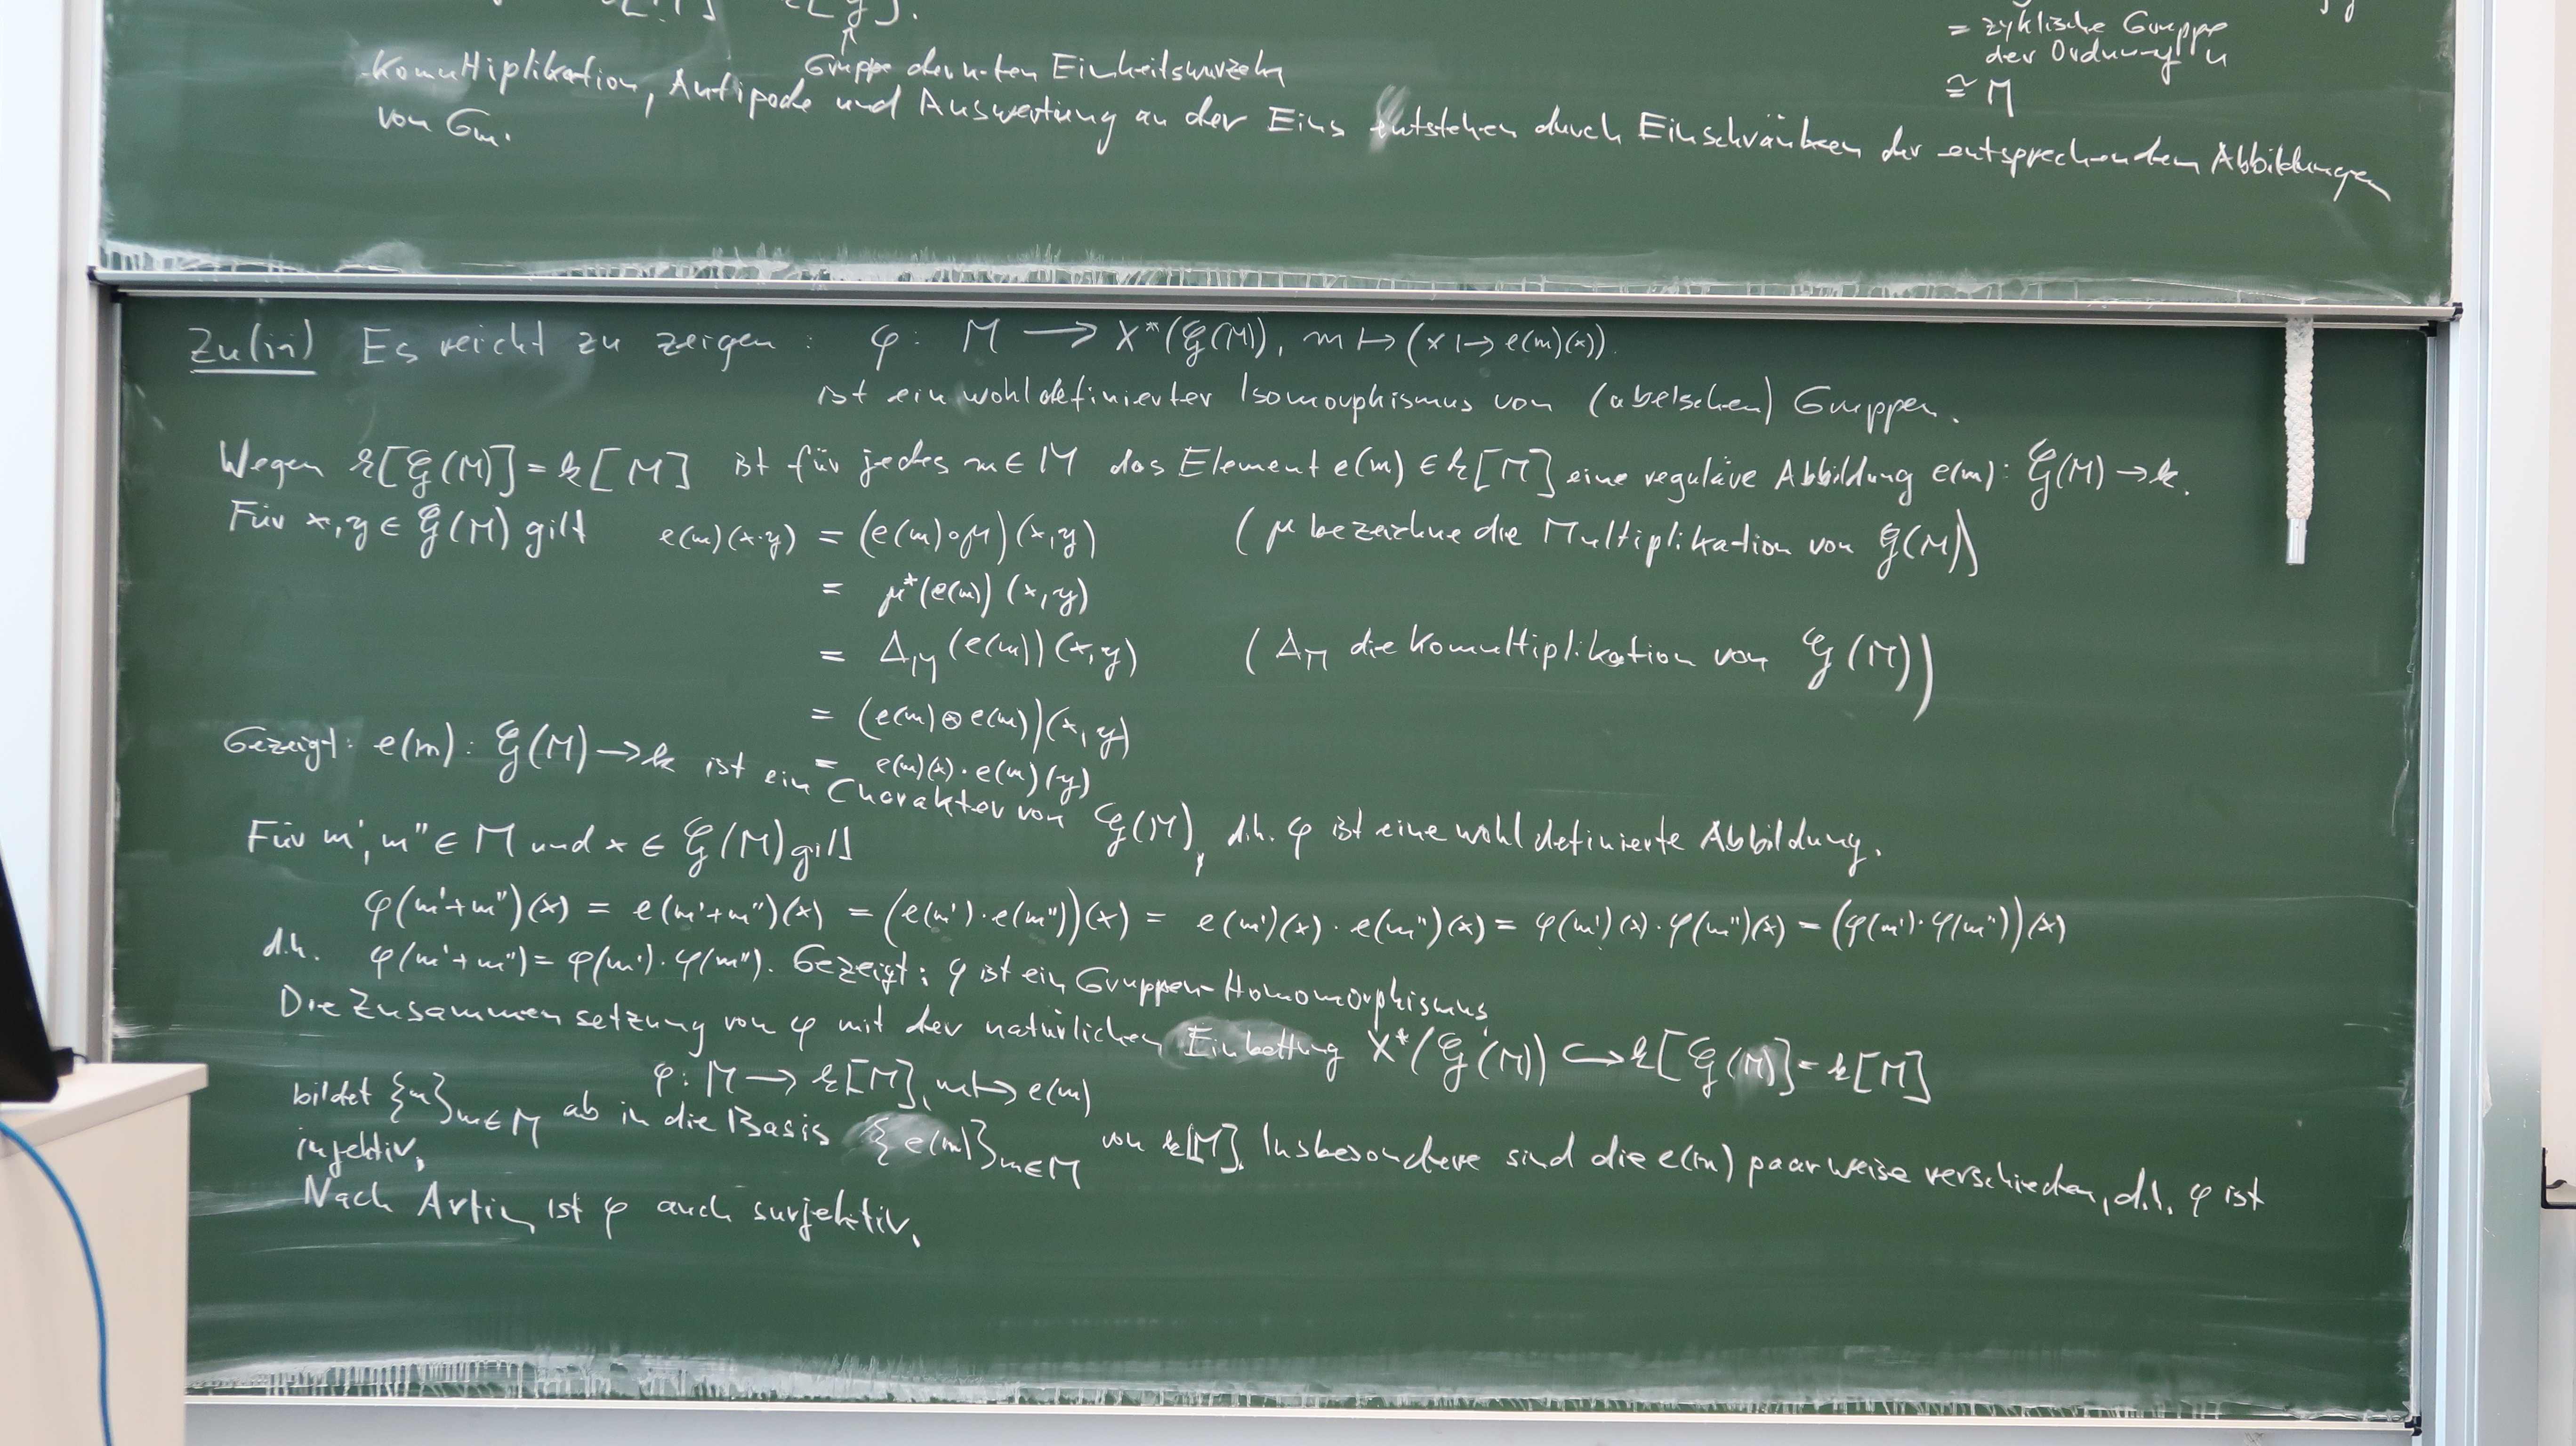 Gruppe der n-ten Einheitswurzeln
= zyklische Gruppe
der Ordnung n
≅ M
Komultiplikation, Antipode und Auswertung an der Eins entstehen durch Einschränken der entsprechenden Abbildungen
von Gm.
Zu(iii) Es reicht zu zeigen: φ: M → X*(𝒢(M)), m ↦ (x ↦ e(m)(x)).
ist ein wohldefinierter Isomorphismus von (abelschen) Gruppen.
Wegen k[𝒢(M)] = k[M] ist für jedes m∈M das Element e(m) ∈ k[M] eine reguläre Abbildung e(m): 𝒢(M) → k.
Für x,y ∈ 𝒢(M) gilt e(m)(x·y) = (e(m)∘μ)(x,y) (μ bezeichne die Multiplikation von 𝒢(M))
= μ*(e(m))(x,y)
= Δ_M(e(m))(x,y) (Δ_M die Komultiplikation von 𝒢(M))
= (e(m)⊗e(m))(x,y)
= e(m)(x)·e(m)(y)
Gezeigt: e(m): 𝒢(M) → k ist ein Charakter von 𝒢(M), d.h. φ ist eine wohldefinierte Abbildung.
Für m', m'' ∈ M und x ∈ 𝒢(M) gilt
φ(m'+m'')(x) = e(m'+m'')(x) = (e(m')·e(m''))(x) = e(m')(x)·e(m'')(x) = φ(m')(x)·φ(m'')(x) = (φ(m')·φ(m''))(x)
d.h. φ(m'+m'') = φ(m')·φ(m''). Gezeigt: φ ist ein Gruppen-Homomorphismus
Die Zusammensetzung von φ mit der natürlichen Einbettung X*(𝒢(M)) ↪ k[𝒢(M)] = k[M]
φ: M → k[M], m ↦ e(m)
bildet {m}_{m∈M} ab in die Basis {e(m)}_{m∈M} von k[M]. Insbesondere sind die e(m) paarweise verschieden, d.h. φ ist
injektiv.
Nach Artin ist φ auch surjektiv.